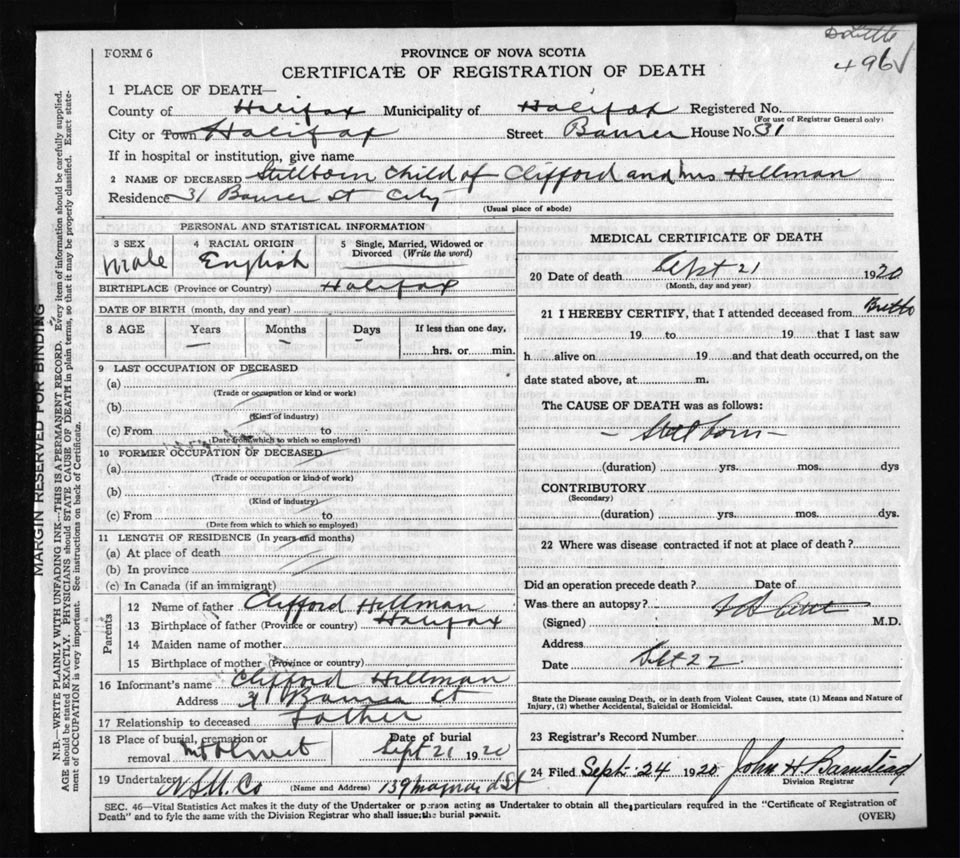 496
FORM 6
PROVINCE OF NOVA SCOTIA
CERTIFICATE OF REGISTRATION OF DEATH
1 PLACE OF DEATH—
County of Halifax Municipality of Halifax Registered No.
(For use of Registrar General only)
City or Town Halifax Street Bauer House No. 31
If in hospital or institution, give name
2 NAME OF DECEASED Stillborn Child of Clifford and Mrs Hillman
Residence 31 Bauer St City
(Usual place of abode)
PERSONAL AND STATISTICAL INFORMATION
3 SEX
Male
4 RACIAL ORIGIN
English
5 Single, Married, Widowed or
Divorced (Write the word)
BIRTHPLACE (Province or Country) Halifax
DATE OF BIRTH (month, day and year)
8 AGE Years Months Days If less than one day,
— - - hrs. or min.
9 LAST OCCUPATION OF DECEASED
(a)
(Trade or occupation or kind or work)
(b)
(Kind of industry)
(c) From to
(Date from which to which so employed)
10 FORMER OCCUPATION OF DECEASED
(a)
(Trade or occupation or kind of work)
(b)
(Kind of industry)
(c) From to
(Date from which to which so employed)
11 LENGTH OF RESIDENCE (In years and months)
(a) At place of death
(b) In province
(c) In Canada (if an immigrant)
Parents
12 Name of father Clifford Hillman
13 Birthplace of father (Province or country) Halifax
14 Maiden name of mother
15 Birthplace of mother (Province or country)
16 Informant's name Clifford Hillman
Address 31 Bauer St
17 Relationship to deceased Father
18 Place of burial, cremation or
removal Mt Olivet
Date of burial
Sept 21 1920
19 Undertaker N.S.U. Co
(Name and Address) 139 Maynard St
MEDICAL CERTIFICATE OF DEATH
20 Date of death Sept 21 1920
(Month, day and year)
21 I HEREBY CERTIFY, that I attended deceased from Birth
19 to 19 that I last saw
h alive on 19 and that death occurred, on the
date stated above, at m.
The CAUSE OF DEATH was as follows:
— Stillborn —
(duration) yrs. mos. dys
CONTRIBUTORY
(Secondary)
(duration) yrs. mos. dys.
22 Where was disease contracted if not at place of death?
Did an operation precede death? Date of
Was there an autopsy?
(Signed) M.D.
Address
Date Sept 22
State the Disease causing Death, or in death from Violent Causes, state (1) Means and Nature of
Injury, (2) whether Accidental, Suicidal or Homicidal.
23 Registrar's Record Number
24 Filed Sept. 24 1920 John H Barnstead
Division Registrar
SEC. 46—Vital Statistics Act makes it the duty of the Undertaker or person acting as Undertaker to obtain all the particulars required in the "Certificate of Registration of
Death" and to fyle the same with the Division Registrar who shall issue the burial permit. (OVER)
MARGIN RESERVED FOR BINDING
N.B.—WRITE PLAINLY WITH UNFADING INK—THIS IS A PERMANENT RECORD. Every item of information should be carefully supplied.
AGE should be stated EXACTLY. PHYSICIANS should STATE CAUSE OF DEATH in plain terms, so that it may be properly classified. Exact state-
ment of OCCUPATION is very important. See instructions on back of Certificate.